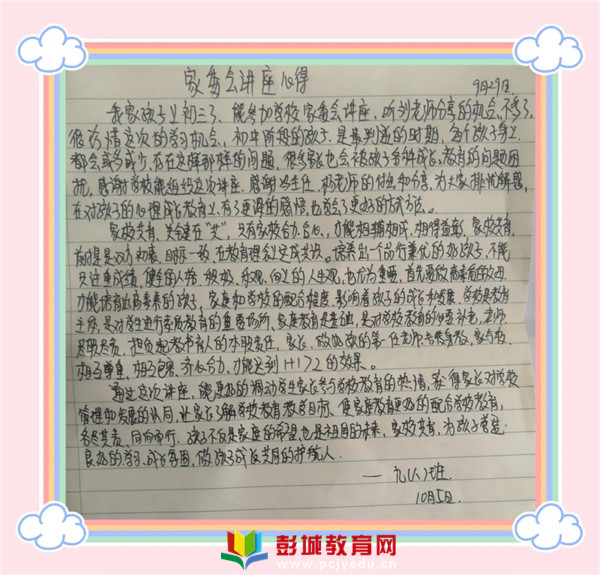 家委会讲座心得
9月29日.
我家孩子上初三了、能参加学校家委会讲座、听到老师分享的机会不多了,
很珍惜这次的学习机会。初中阶段的孩子、是最叛逆的时期、每个孩子身上
都会或多或少、存在这样那样的问题、很多家长也会被孩子各种成长、教育的问题困
扰,感谢学校能组织这次讲座、感谢 主任、 老师的付出和分享,为大家排忧解惑,
在对孩子的心理成长教育上、有了更深的感悟,也学会了更好的方式方法。
家校共育、关键在"共",只有家校合力合心,才能相辅相成、相得益彰、家校共育,
前提是双方和睦、目标一致,在教育理念上达成共识。培养出一个品行兼优的好孩子,不能
只注重成绩,健全的人格、积极、乐观、向上的人生观,也尤为重要,首先要做高素质的父母
才能培育出高素养的孩子,家庭和学校的配合程度,影响着孩子的成长和发展,学校是教育
主体,是对学生进行素质教育的重要场所、家庭教育是基础,是对学校教育的 要补充,老师
尽职尽责,担负起教书育人的本职责任,家长、做好孩子的第一任老师去教育孩子,家与校、
相互尊重、相互包容、齐心合力,才能达到1+1>2的效果。
通过这次讲座,能更好的调动学生家长参与学校教育的热情,获得家长对学校
管理和发展的认同,让家长了解学校教育教学目标、使家庭教育更好的配合学校教育,
各尽其责、同向而行。孩子不仅是家庭的希望,也是祖国的未来,家校共育,为孩子营造
良好的学习、成长氛围,做孩子成长共同的护航人.
——九(八)班
10月5日.
彭城教育网
www.pcjyedu.cn